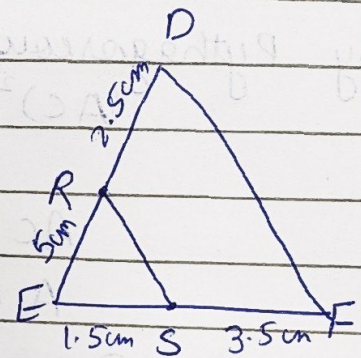 D
2.5cm
R
5cm
E
1.5cm
S
3.5cm
F